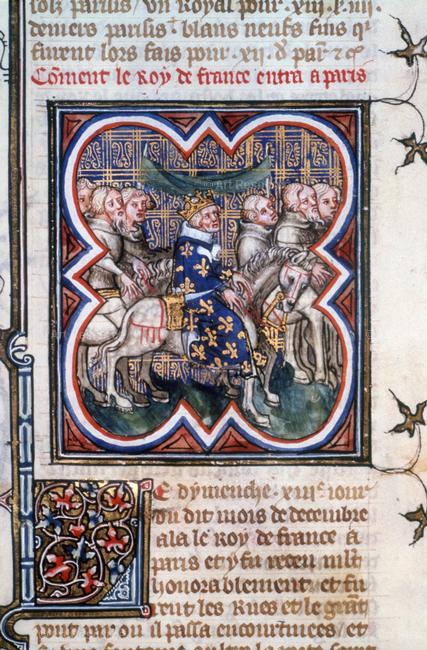 solz parisis / un Royal pour · xiii · s · iiii ·
deniers parisis · blans neufs fins qͥ
furent lors fais pour · xii · d̾ par̃ ⁊ cͣ
Cōment le Roy de france entra a paris
Art Res
Le dymenche · xiiiᵉ iour
du dit mois de decembre
ala le Roy de france a
paris et y fu receu mlt̃
honorablement / et fu
rent les Rues et le grāt
pont par ou il passa encourtinees / et